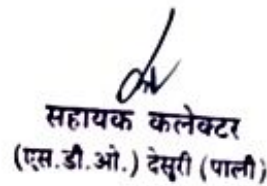 सहायक कलेक्टर
(एस.डी.ओ.) देसुरी (पाली)